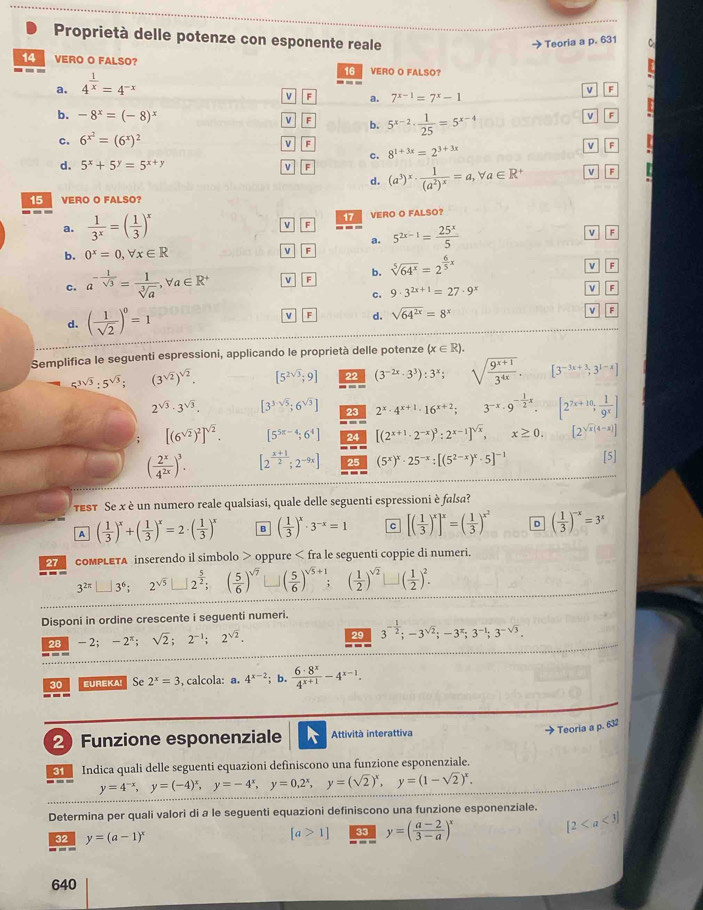 Proprietà delle potenze con esponente reale
→ Teoria a p. 631
14 VERO O FALSO?
a. 4^{1/x} = 4^{-x} V F
b. -8^x = (-8)^x V F
c. 6^{x^2} = (6^x)^2 V F
d. 5^x + 5^y = 5^{x+y} V F
15 VERO O FALSO?
a. 1/3^x = (1/3)^x V F
b. 0^x = 0, ∀x ∈ ℝ V F
c. a^{-1/√3} = 1/∛a, ∀a ∈ ℝ⁺ V F
d. (1/√2)^0 = 1 V F
16 VERO O FALSO?
a. 7^{x-1} = 7^x - 1 V F
b. 5^{x-2} · 1/25 = 5^{x-4} V F
c. 8^{1+3x} = 2^{3+3x} V F
d. (a^3)^x · 1/(a^2)^x = a, ∀a ∈ ℝ⁺ V F
17 VERO O FALSO?
a. 5^{2x-1} = 25^x/5 V F
b. ⁵√(64^x) = 2^{(6/5)x} V F
c. 9 · 3^{2x+1} = 27 · 9^x V F
d. √(64^{2x}) = 8^x V F
Semplifica le seguenti espressioni, applicando le proprietà delle potenze (x ∈ ℝ).
5^{3√3} : 5^{√3}; (3^{√2})^{√2}. [5^{2√3}; 9]
2^{√3} · 3^{√3}. [3^{3·√5}; 6^{√3}]
; [(6^{√2})^2]^{√2}. [5^{5π-4}; 6^4]
(2^x/4^{2x})^3. [2^{(x+1)/2}; 2^{-9x}]
22 (3^{-2x} · 3^3) : 3^x; √(9^{x+1}/3^{4x}). [3^{-3x+3}; 3^{1-x}]
23 2^x · 4^{x+1} · 16^{x+2}; 3^{-x} · 9^{-(1/2)x}. [2^{7x+10}; 1/9^x]
24 [(2^{x+1} · 2^{-x})^3 : 2^{x-1}]^{√x}, x ≥ 0. [2^{√x(4-x)}]
25 (5^x)^x · 25^{-x} : [(5^{2-x})^x · 5]^{-1} [5]
TEST Se x è un numero reale qualsiasi, quale delle seguenti espressioni è falsa?
A (1/3)^x + (1/3)^x = 2 · (1/3)^x B (1/3)^x · 3^{-x} = 1 C [(1/3)^x]^x = (1/3)^{x^2} D (1/3)^{-x} = 3^x
27 COMPLETA inserendo il simbolo > oppure < fra le seguenti coppie di numeri.
3^{2π} □ 3^6; 2^{√5} □ 2^{5/2}; (5/6)^{√7} □ (5/6)^{√5+1}; (1/2)^{√2} □ (1/2)^2.
Disponi in ordine crescente i seguenti numeri.
28 -2; -2^π; √2; 2^{-1}; 2^{√2}.
29 3^{-1/2}; -3^{√2}; -3^π; 3^{-1}; 3^{-√3}.
30 EUREKA! Se 2^x = 3, calcola: a. 4^{x-2}; b. 6·8^x/4^{x+1} - 4^{x-1}.
2 Funzione esponenziale Attività interattiva → Teoria a p. 632
31 Indica quali delle seguenti equazioni definiscono una funzione esponenziale.
y = 4^{-x}, y = (-4)^x, y = -4^x, y = 0,2^x, y = (√2)^x, y = (1 - √2)^x.
Determina per quali valori di a le seguenti equazioni definiscono una funzione esponenziale.
32 y = (a - 1)^x [a > 1]
33 y = ((a-2)/(3-a))^x [2 < a < 3]
640